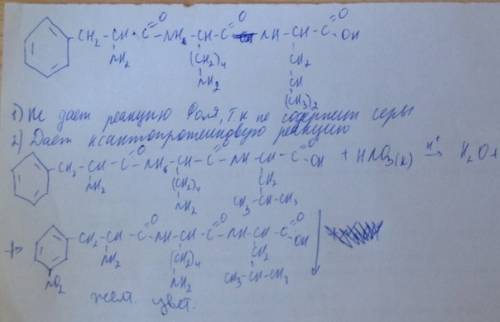 CH₂ - CH - C O NH - CH - C O NH - CH - C O OH
NH₂ (CH₂)₄ CH₂
NH₂ CH
(CH₃)₂
1) Не дает реакцию Фоля, т.к не содержит серы
2) Дает ксантопротеиновую реакцию
CH₂ - CH - C O NH - CH - C O NH - CH - C O OH + HNO₃(к) → H₂O +
NH₂ (CH₂)₄ CH₂
NH₂ CH₃-CH-CH₃
+ CH₂ - CH - C O NH - CH - C O NH - CH - C O OH ↓
NH₂ (CH₂)₄ CH₂
NO₂ NH₂ CH₃-CH-CH₃
желт. цвет.